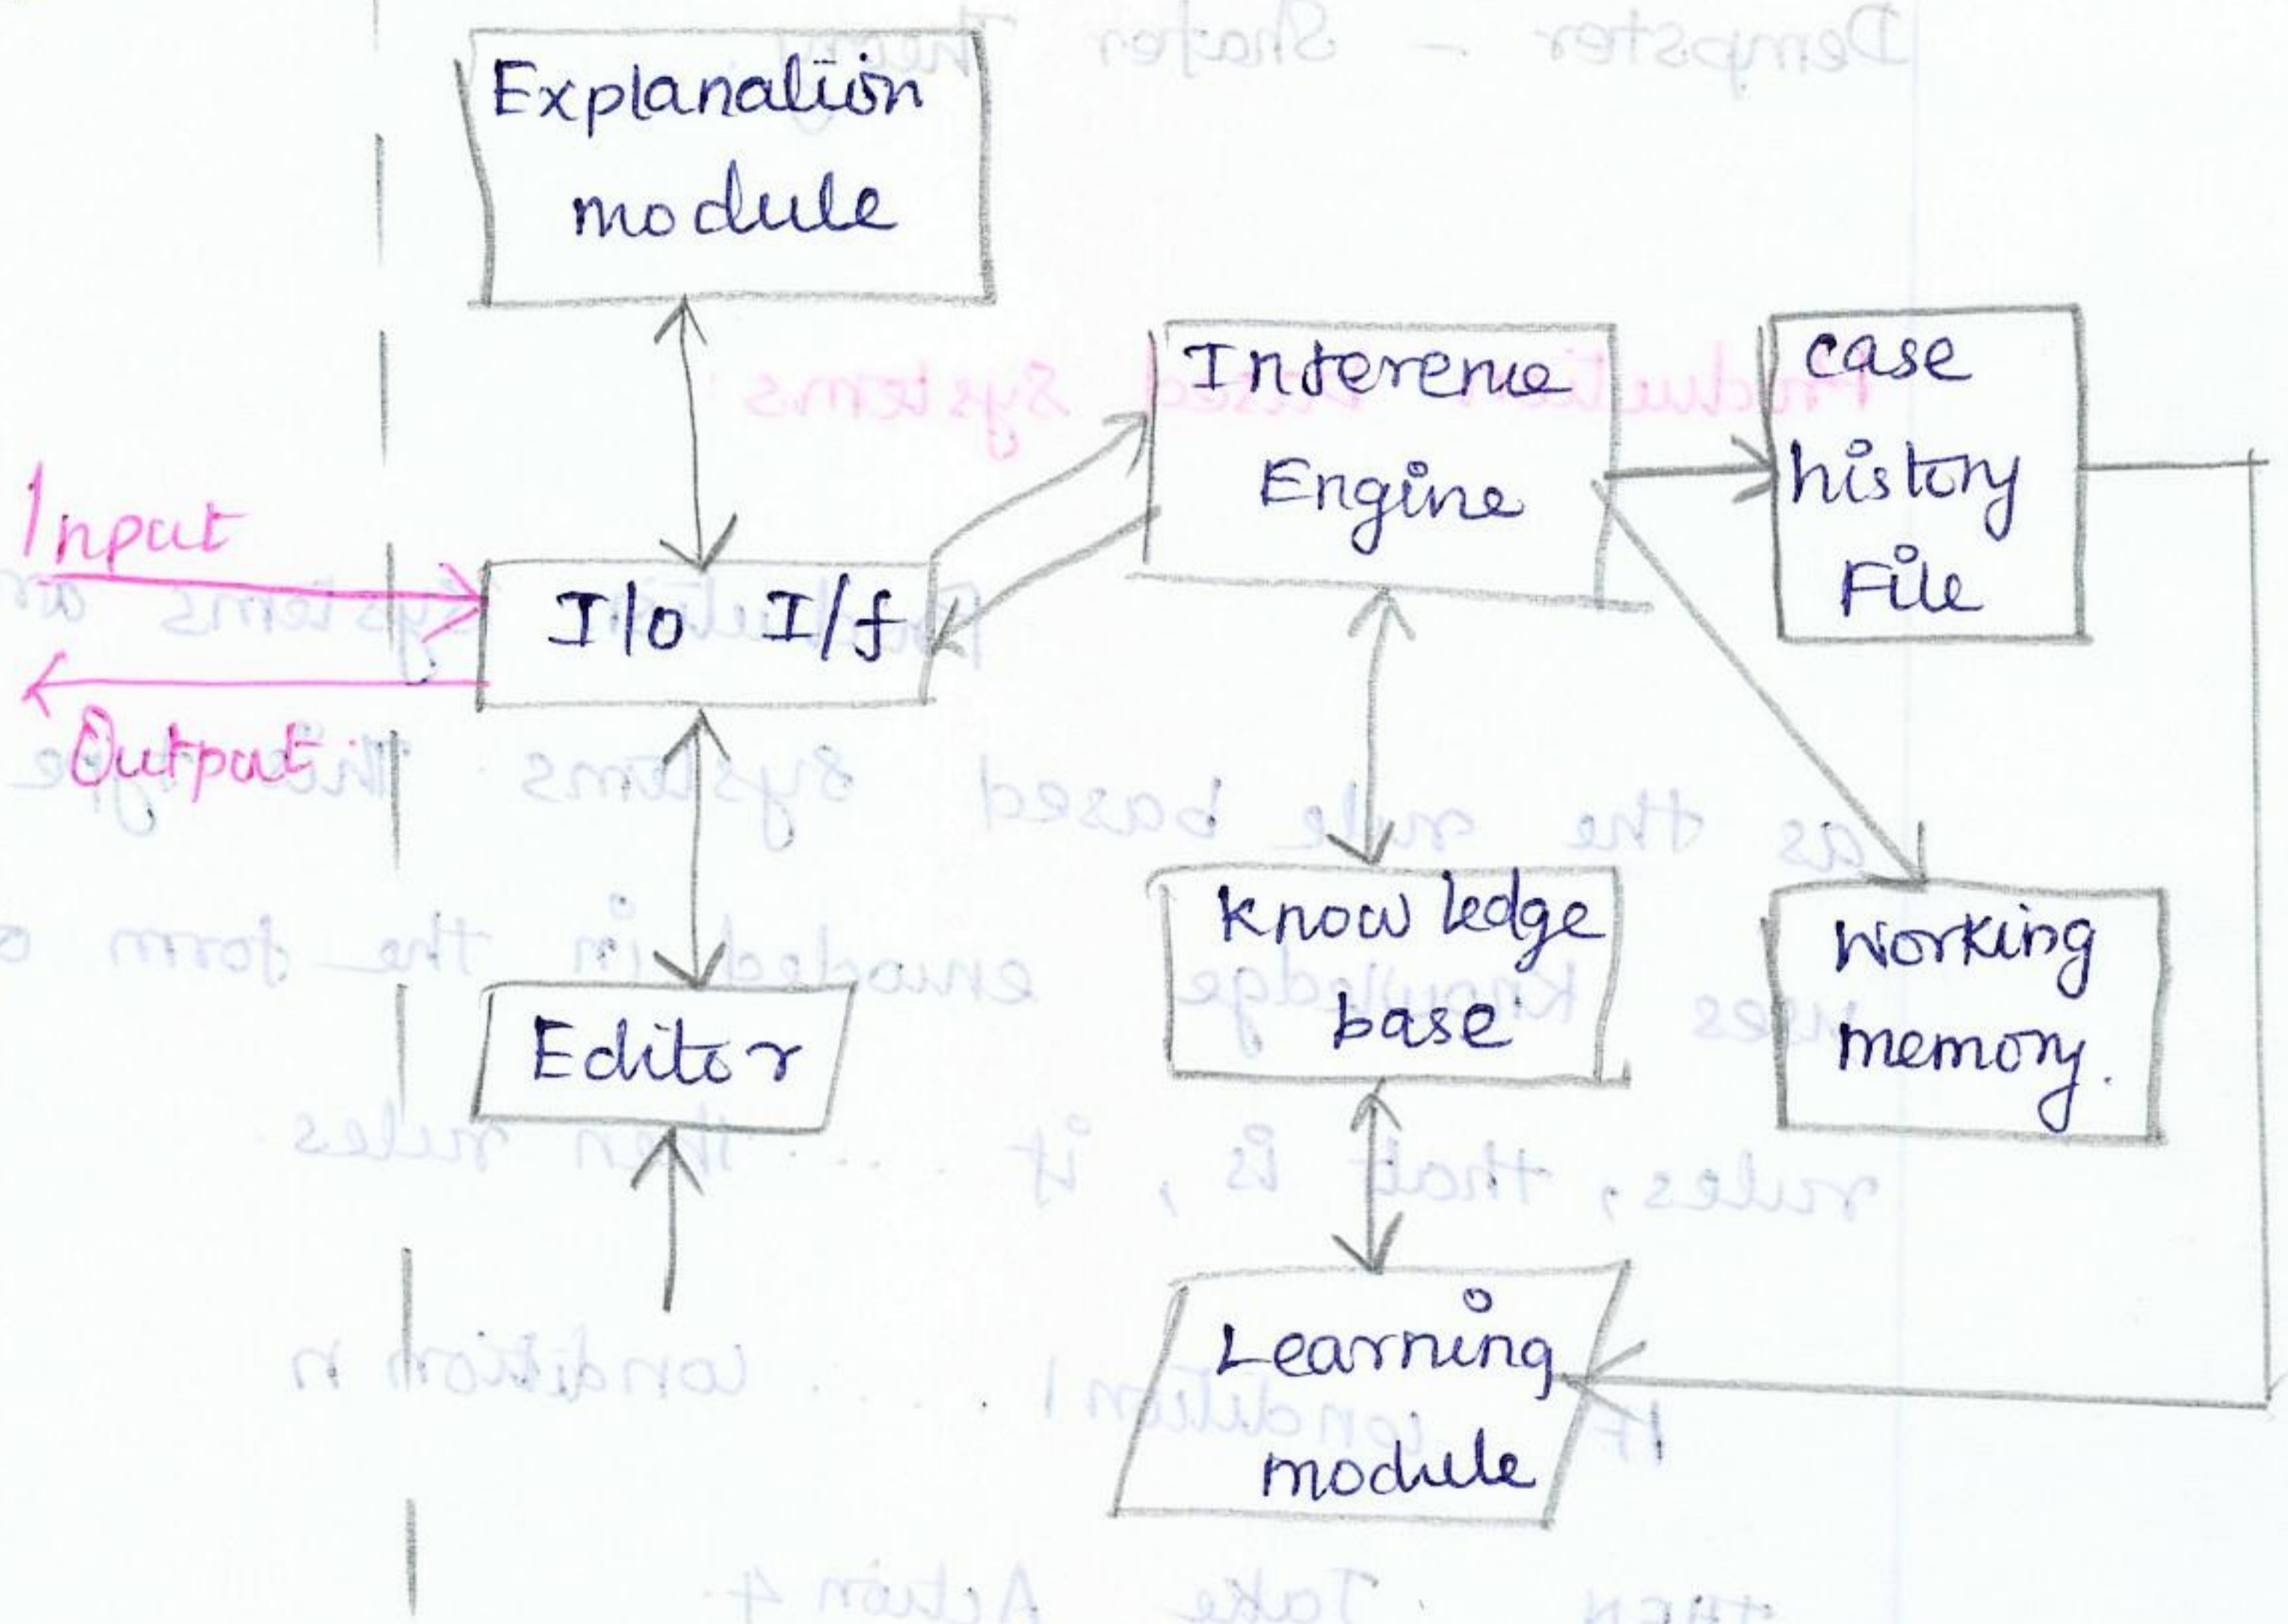 Explanation
module
Inference
Engine
case
history
File
Input
I/o I/f
Output
knowledge
base
Working
memory.
Editor
Learning
module